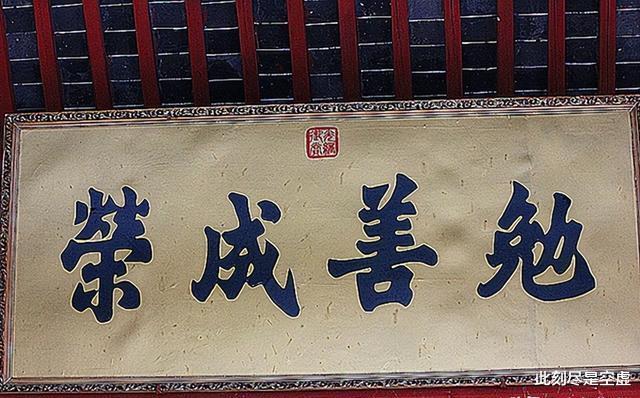 勉善成榮
此刻尽是空虚